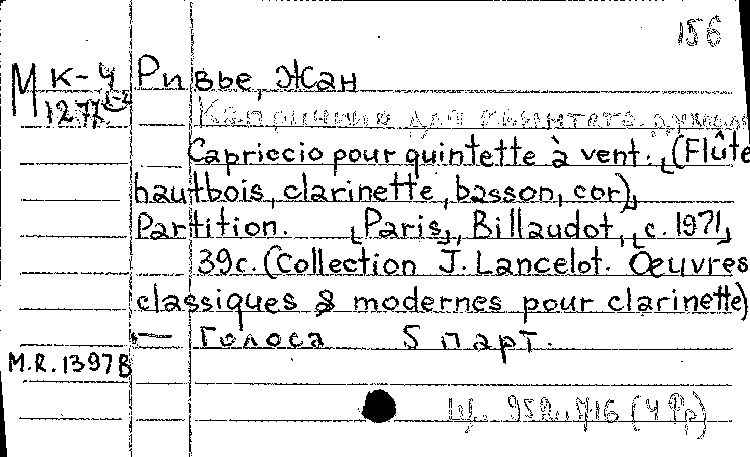 156
М К-4 Ривье, Жан
1277
Каприччио для квинтета духовых
Capriccio pour quintette à vent. (Flûte
hautbois, clarinette, basson, cor)
Partition. [Paris], Billaudot, [c. 1971]
39с. (Collection J. Lancelot. Oeuvres
classiques & modernes pour clarinette)
— Голоса 5 парт.
M.R. 1397B